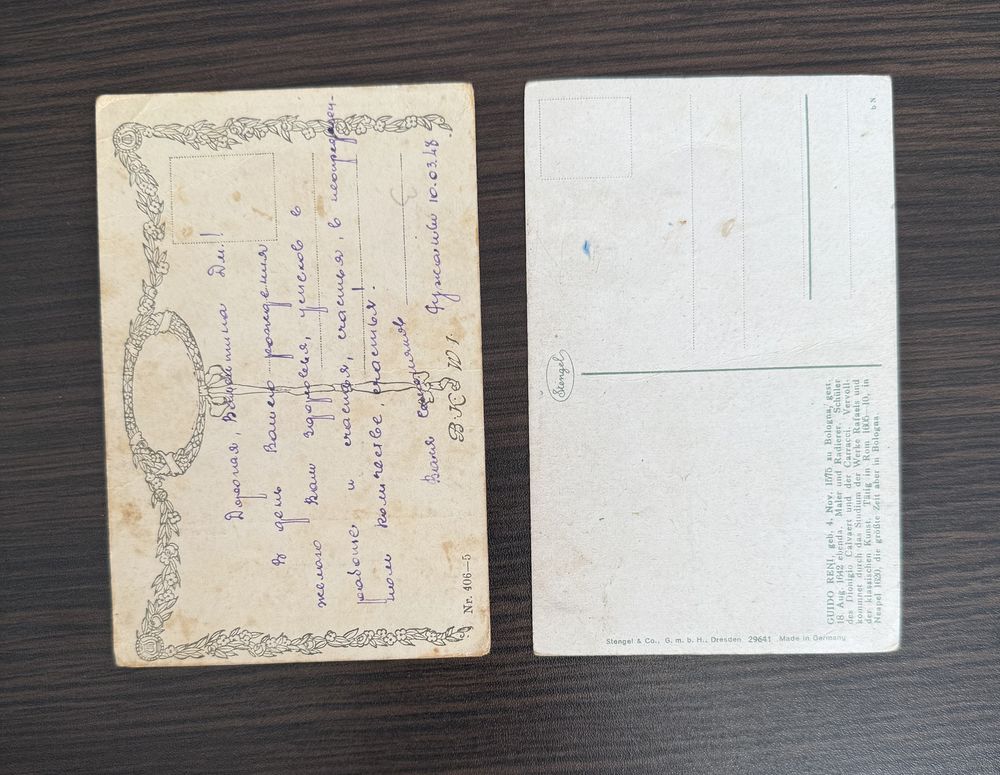 Дорогая, Валентина Дм.!
В день Вашего рождения
желаю Вам здоровья, успехов в
работе и счастья, счастья, в неопределен-
ном количестве, счастья!
Ваня
Фужалин 10.03.48
B.K.W.I.
Nr. 406—5
Stengel
GUIDO RENI, geb. 4. Nov. 1575 zu Bologna, gest.
18. Aug. 1642 ebenda. Maler und Radierer. Schüler
des Dionigio Calvaert und der Carracci. Vervoll-
kommnet durch das Studium der Werke Rafaels und
der klassischen Kunst. Tätig in Rom 1605—10, in
Neapel 1620, die größte Zeit aber in Bologna.
Stengel & Co., G. m. b. H., Dresden 29641 Made in Germany
b N